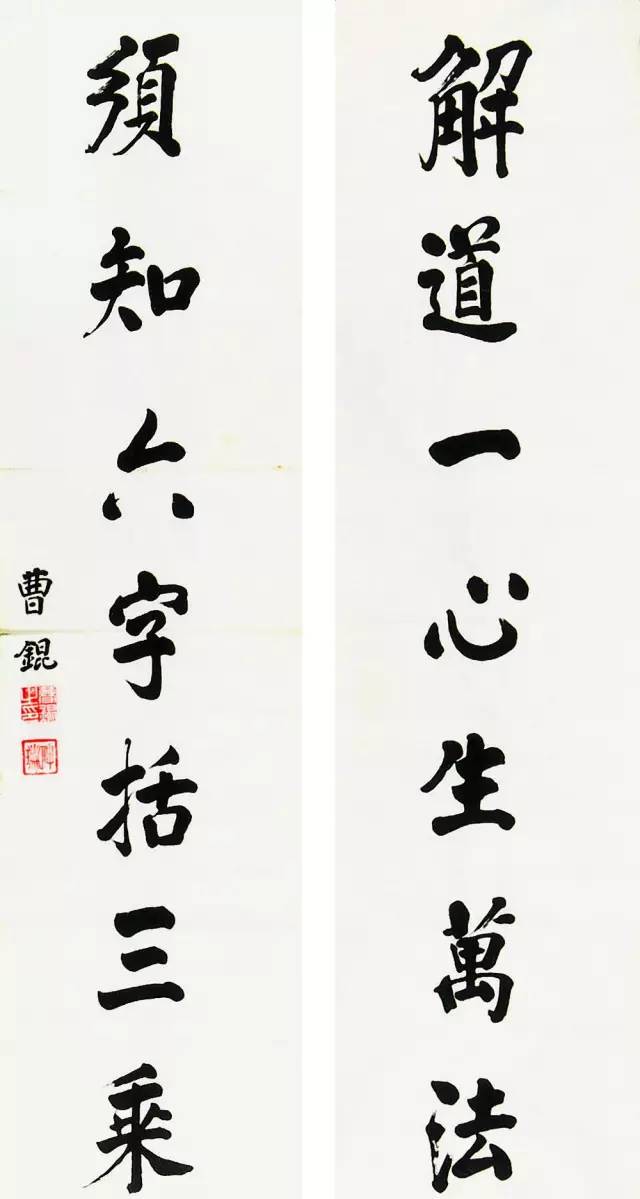 解道一心生萬法
須知六字括三乘
曹錕